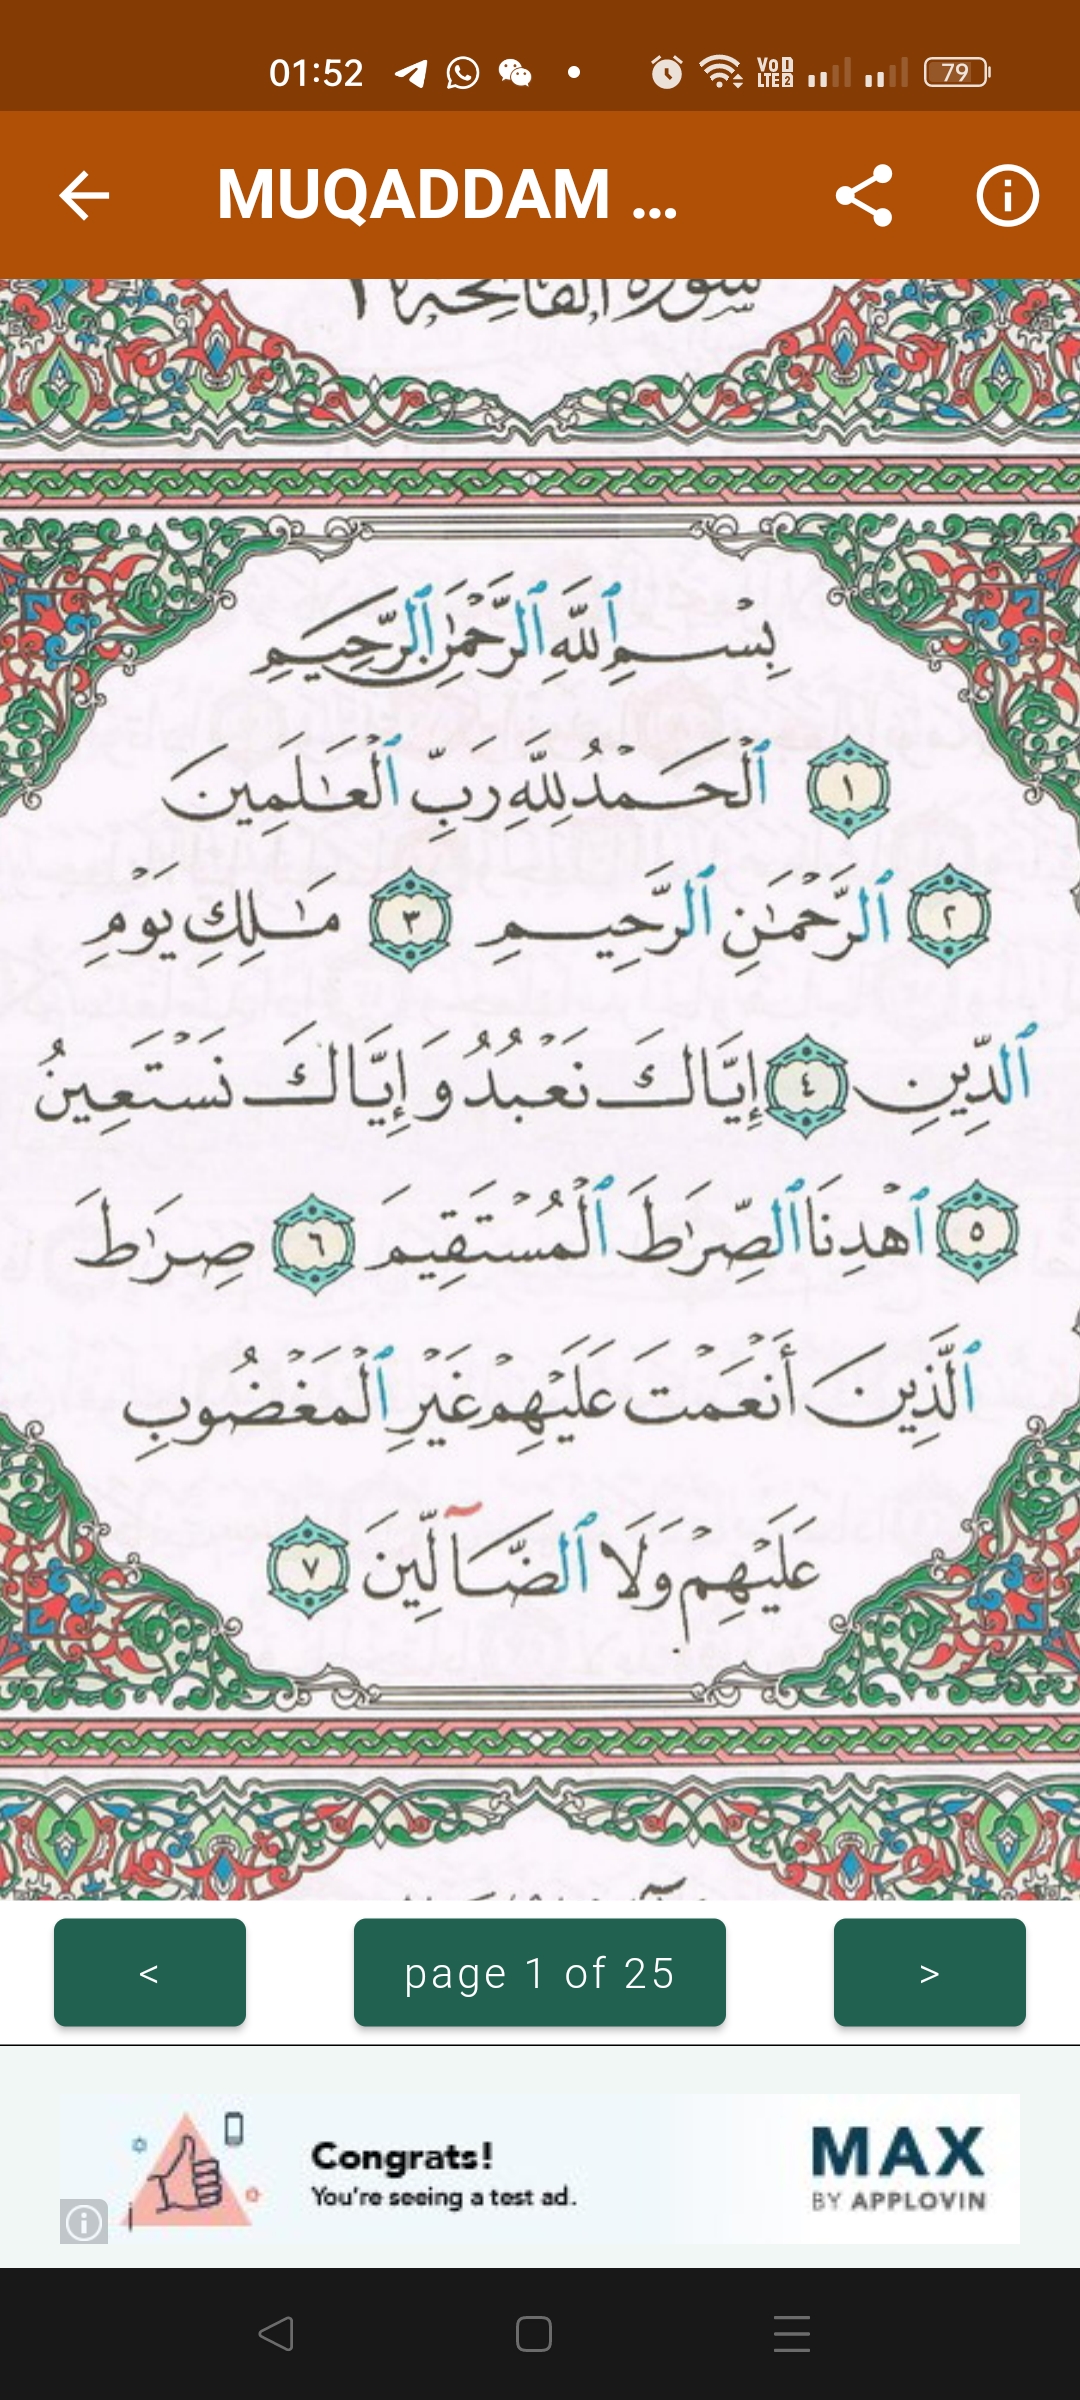 01:52
VoD LTE2
79
MUQADDAM ...
سورة الفاتحة ١
بِسْمِ ٱللَّهِ ٱلرَّحْمَٰنِ ٱلرَّحِيمِ
١ ٱلْحَمْدُ لِلَّهِ رَبِّ ٱلْعَٰلَمِينَ
٢ ٱلرَّحْمَٰنِ ٱلرَّحِيمِ ٣ مَٰلِكِ يَوْمِ
ٱلدِّينِ ٤ إِيَّاكَ نَعْبُدُ وَإِيَّاكَ نَسْتَعِينُ
٥ ٱهْدِنَا ٱلصِّرَٰطَ ٱلْمُسْتَقِيمَ ٦ صِرَٰطَ
ٱلَّذِينَ أَنْعَمْتَ عَلَيْهِمْ غَيْرِ ٱلْمَغْضُوبِ
عَلَيْهِمْ وَلَا ٱلضَّآلِّينَ ٧
<
page 1 of 25
>
Congrats!
You're seeing a test ad.
MAX
BY APPLOVIN